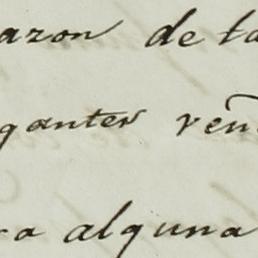 azon de la
ganter ven
ra alguna